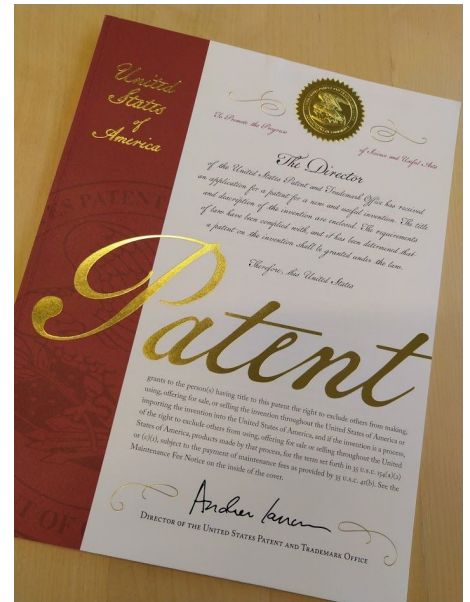 United
States
of
America
To Promote the Progress
of Science and Useful Arts
The Director
of the United States Patent and Trademark Office has received
an application for a patent for a new and useful invention. The title
and description of the invention are enclosed. The requirements
of law have been complied with, and it has been determined that
a patent on the invention shall be granted under the law.
Therefore, this United States
Patent
grants to the person(s) having title to this patent the right to exclude others from making,
using, offering for sale, or selling the invention throughout the United States of America or
importing the invention into the United States of America, and if the invention is a process,
of the right to exclude others from using, offering for sale or selling throughout the United
States of America, products made by that process, for the term set forth in 35 U.S.C. 154(a)(2)
or (c)(1), subject to the payment of maintenance fees as provided by 35 U.S.C. 41(b). See the
Maintenance Fee Notice on the inside of the cover.
DIRECTOR OF THE UNITED STATES PATENT AND TRADEMARK OFFICE